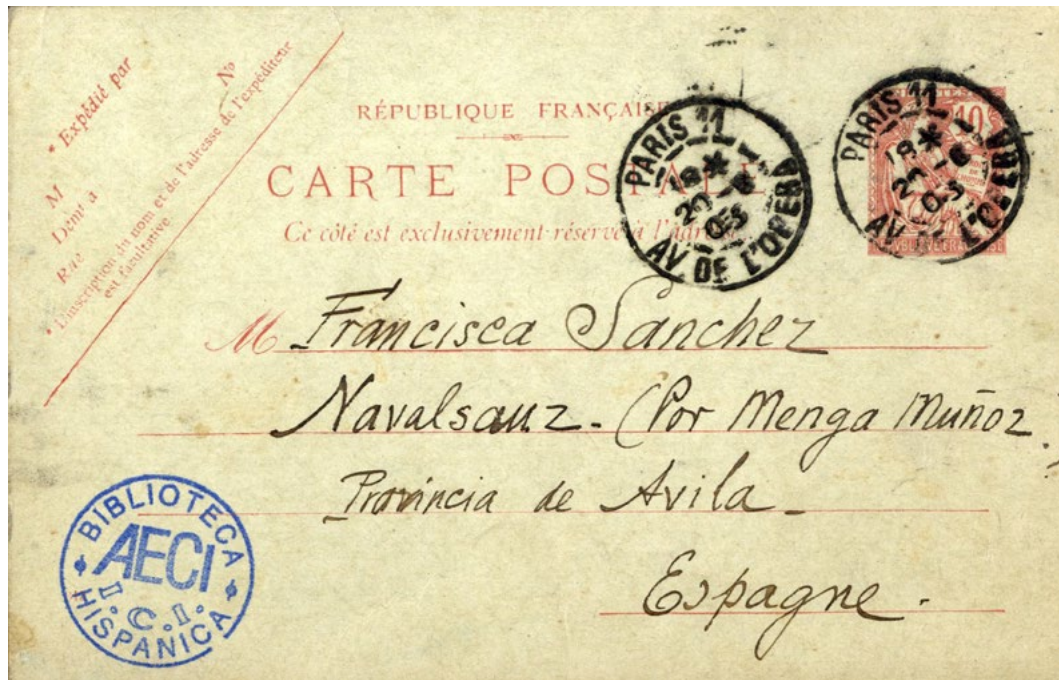 • Expédié par
M No
Demt à
Rue
• L'inscription du nom et de l'adresse de l'expéditeur
est facultative
RÉPUBLIQUE FRANÇAISE
CARTE POSTALE
Ce côté est exclusivement réservé à l'adresse
PARIS 11
18 *
20 - 6
03
AV. DE L'OPERA
PARIS 11
18 *
20 - 6
03
AV. DE L'OPERA
10
M Francisca Sanchez
Navalsauz - (Por Menga Muñoz
Provincia de Avila -
Espagne .
BIBLIOTECA
AECI
I.C.I.
HISPANICA